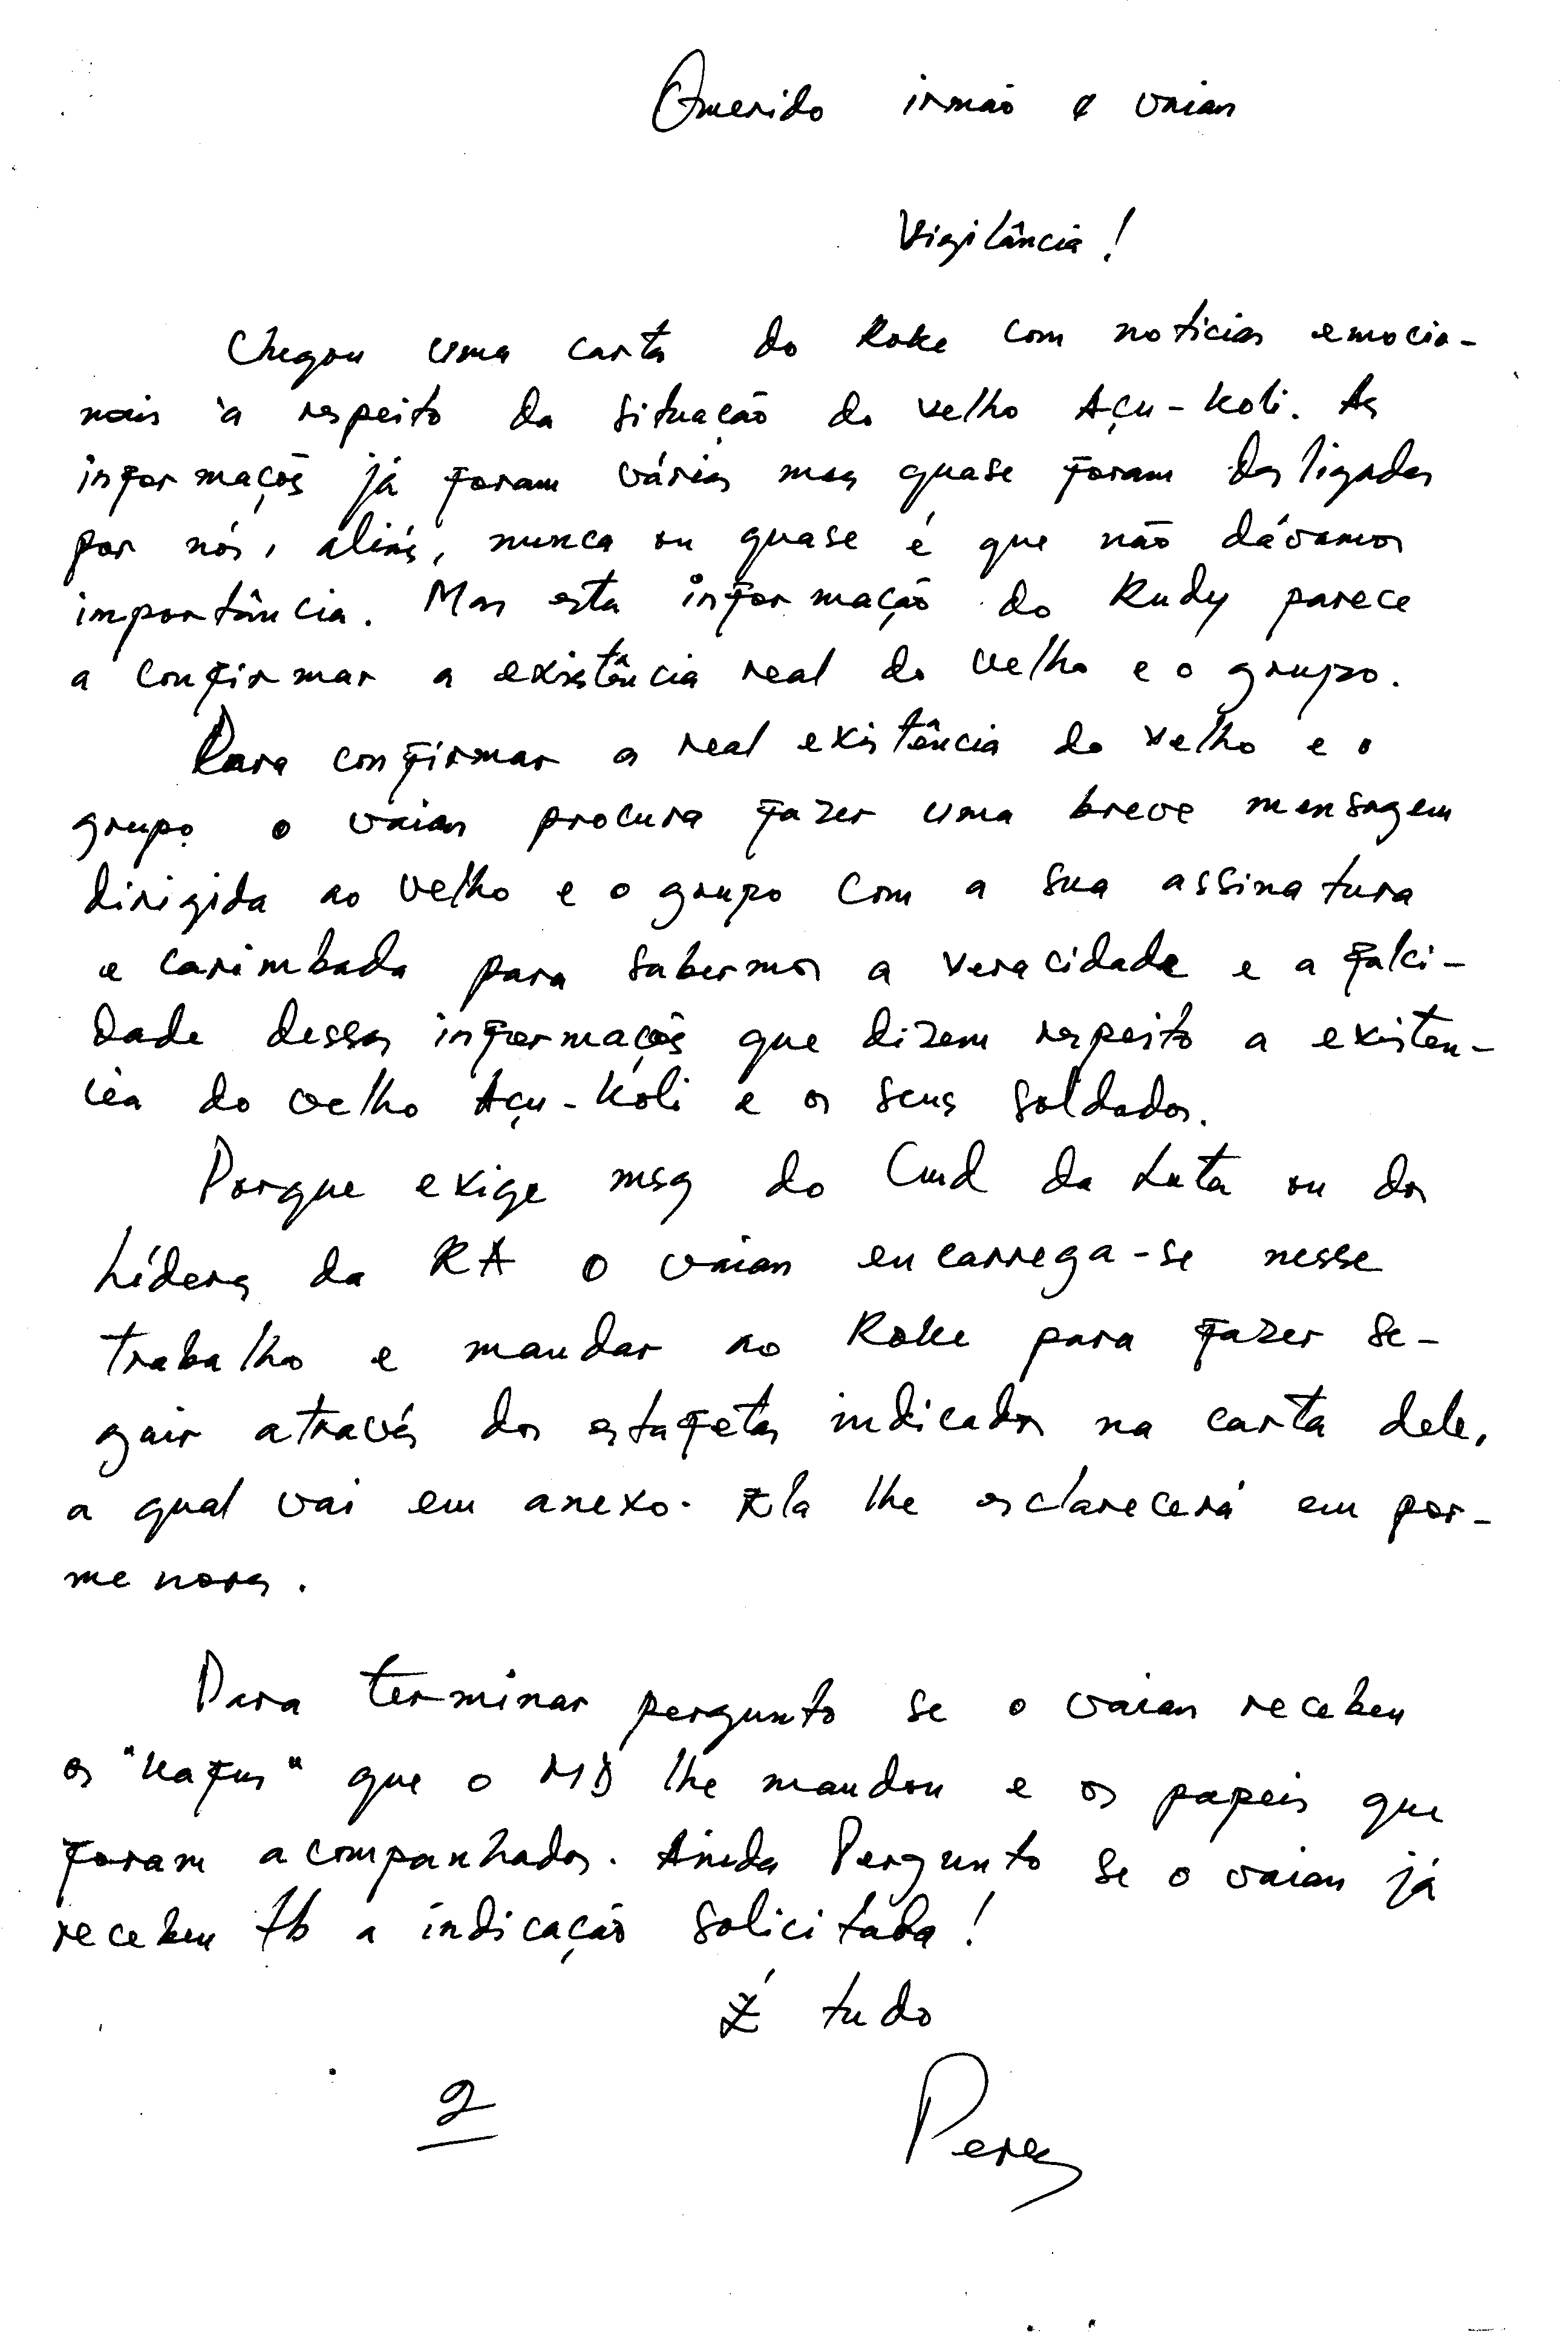 Querido irmão e vaian
Vigilância!
Chegou uma carta do Roke com noticias emocio-
nais à respeito da situação do velho Açu-Koli. As
informações já foram várias mas quase foram desligadas
por nós, aliás, nunca ou quase é que não dávamos
importância. Mas esta informação do Rudy parece
a confirmar a existência real do velho e o grupo.
Para confirmar a real existência do velho e o
grupo o vaian procura fazer uma breve mensagem
dirigida ao velho e o grupo com a sua assinatura
e carimbada para sabermos a veracidade e a falci-
dade dessas informações que dizem respeito a existen-
cia do velho Açu-Koli e os seus soldados.
Porque exige msg do Cmd da Luta ou dos
Líderes da RA o vaian encarrega-se nesse
trabalho e mandar ao Roke para fazer se-
guir através dos estafetas indicados na carta dele,
a qual vai em anexo. Ela lhe esclarecerá em por-
menores.
Para terminar pergunto se o vaian recebeu
os "Kafus" que o MD lhe mandou e os papeis que
foram acompanhados. Ainda Pergunto se o vaian já
recebeu tb a indicação solicitada!
É tudo
2 Perez